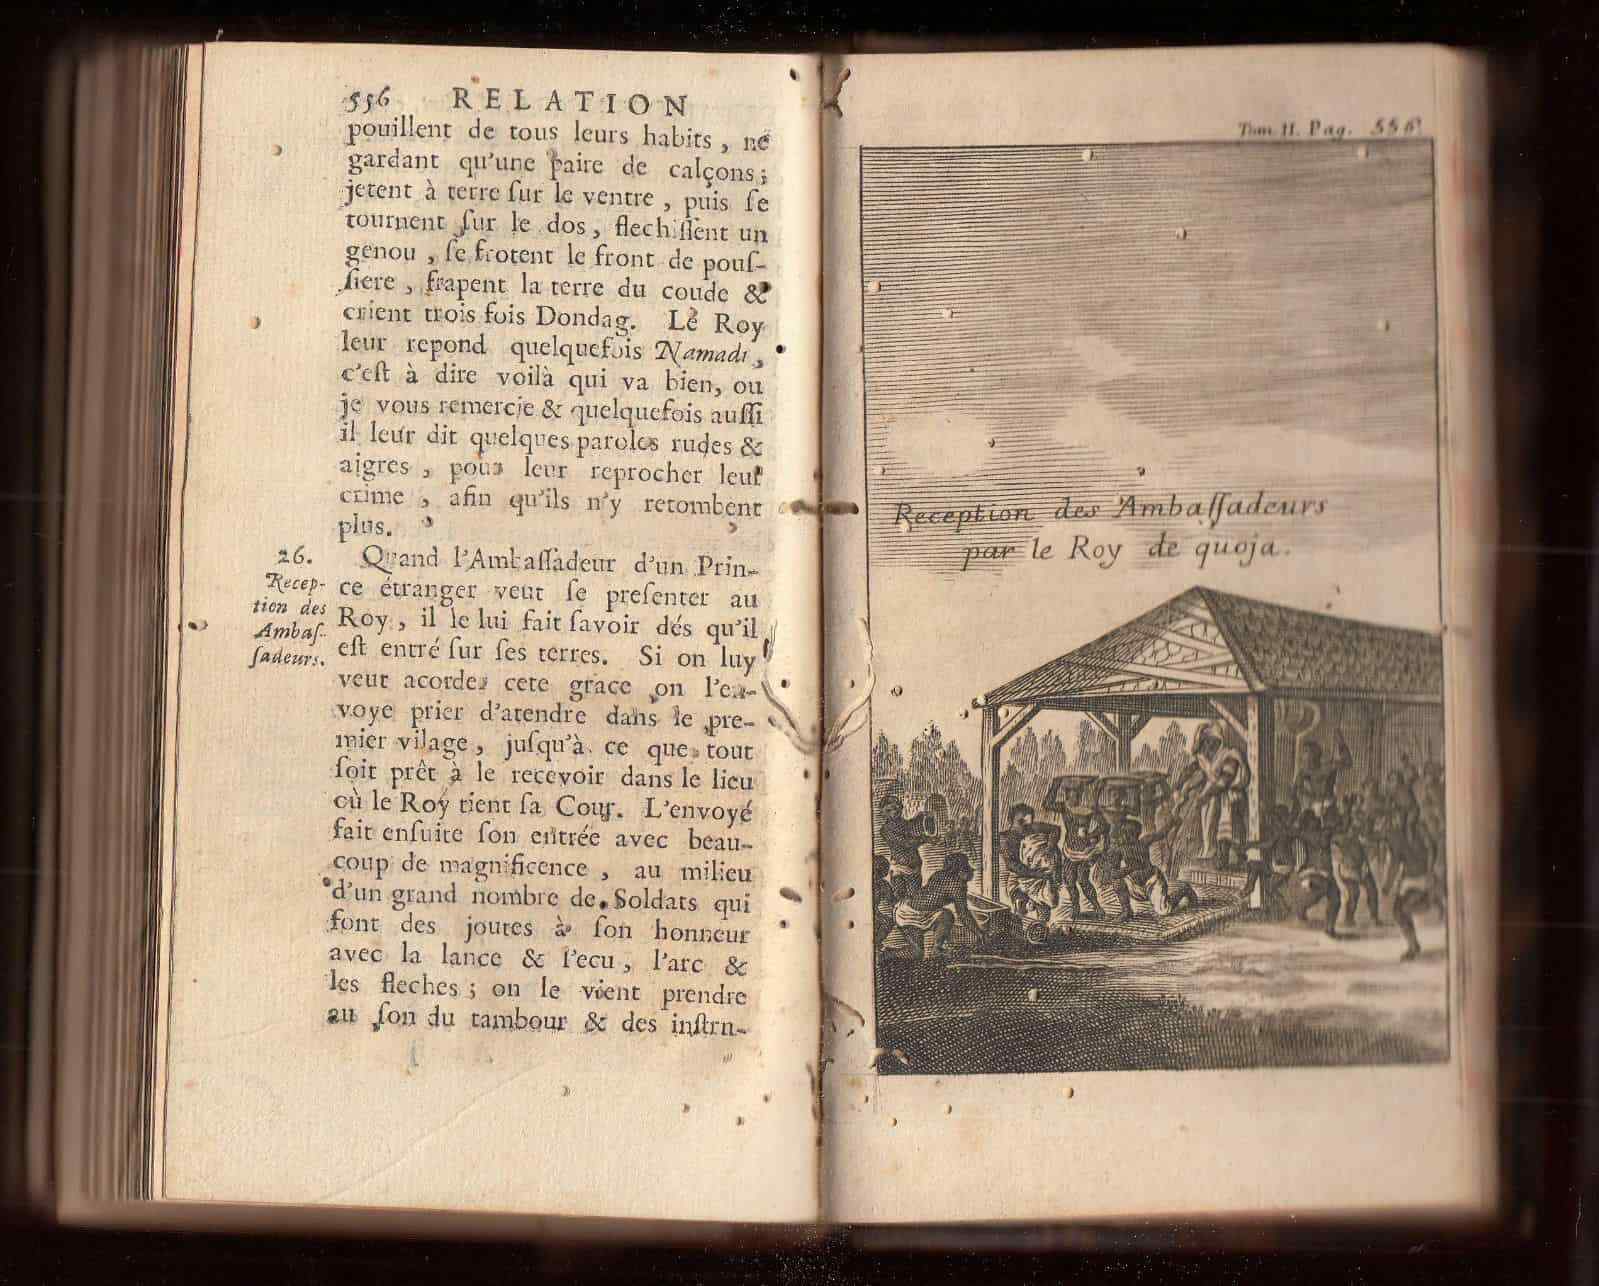 556 RELATION
pouillent de tous leurs habits, ne
gardant qu'une paire de calçons;
jetent à terre ſur le ventre, puis ſe
tournent ſur le dos, flechiſſent un
genou, ſe frotent le front de pouſ-
ſiere, frapent la terre du coude &
crient trois fois Dondag. Le Roy
leur repond quelquefois Namadi,
c'eſt à dire voilà qui va bien, ou
je vous remercie & quelquefois auſſi
il leur dit quelques paroles rudes &
aigres, pour leur reprocher leur
crime, afin qu'ils n'y retombent
plus.
26.
Recep-
tion des
Ambaſ-
ſadeurs.
Quand l'Ambaſſadeur d'un Prin-
ce étranger veut ſe preſenter au
Roy, il le lui fait ſavoir dés qu'il
eſt entré ſur ſes terres. Si on luy
veut acorder cete grace on l'en-
voye prier d'atendre dans le pre-
mier vilage, juſqu'à ce que tout
ſoit prêt à le recevoir dans le lieu
où le Roy tient ſa Cour. L'envoyé
fait enſuite ſon entrée avec beau-
coup de magnificence, au milieu
d'un grand nombre de Soldats qui
font des joutes à ſon honneur
avec la lance & l'ecu, l'arc &
les fleches; on le vient prendre
au ſon du tambour & des inſtru-
Tom II. Pag. 556
Reception des Ambaſſadeurs
par le Roy de quoja.